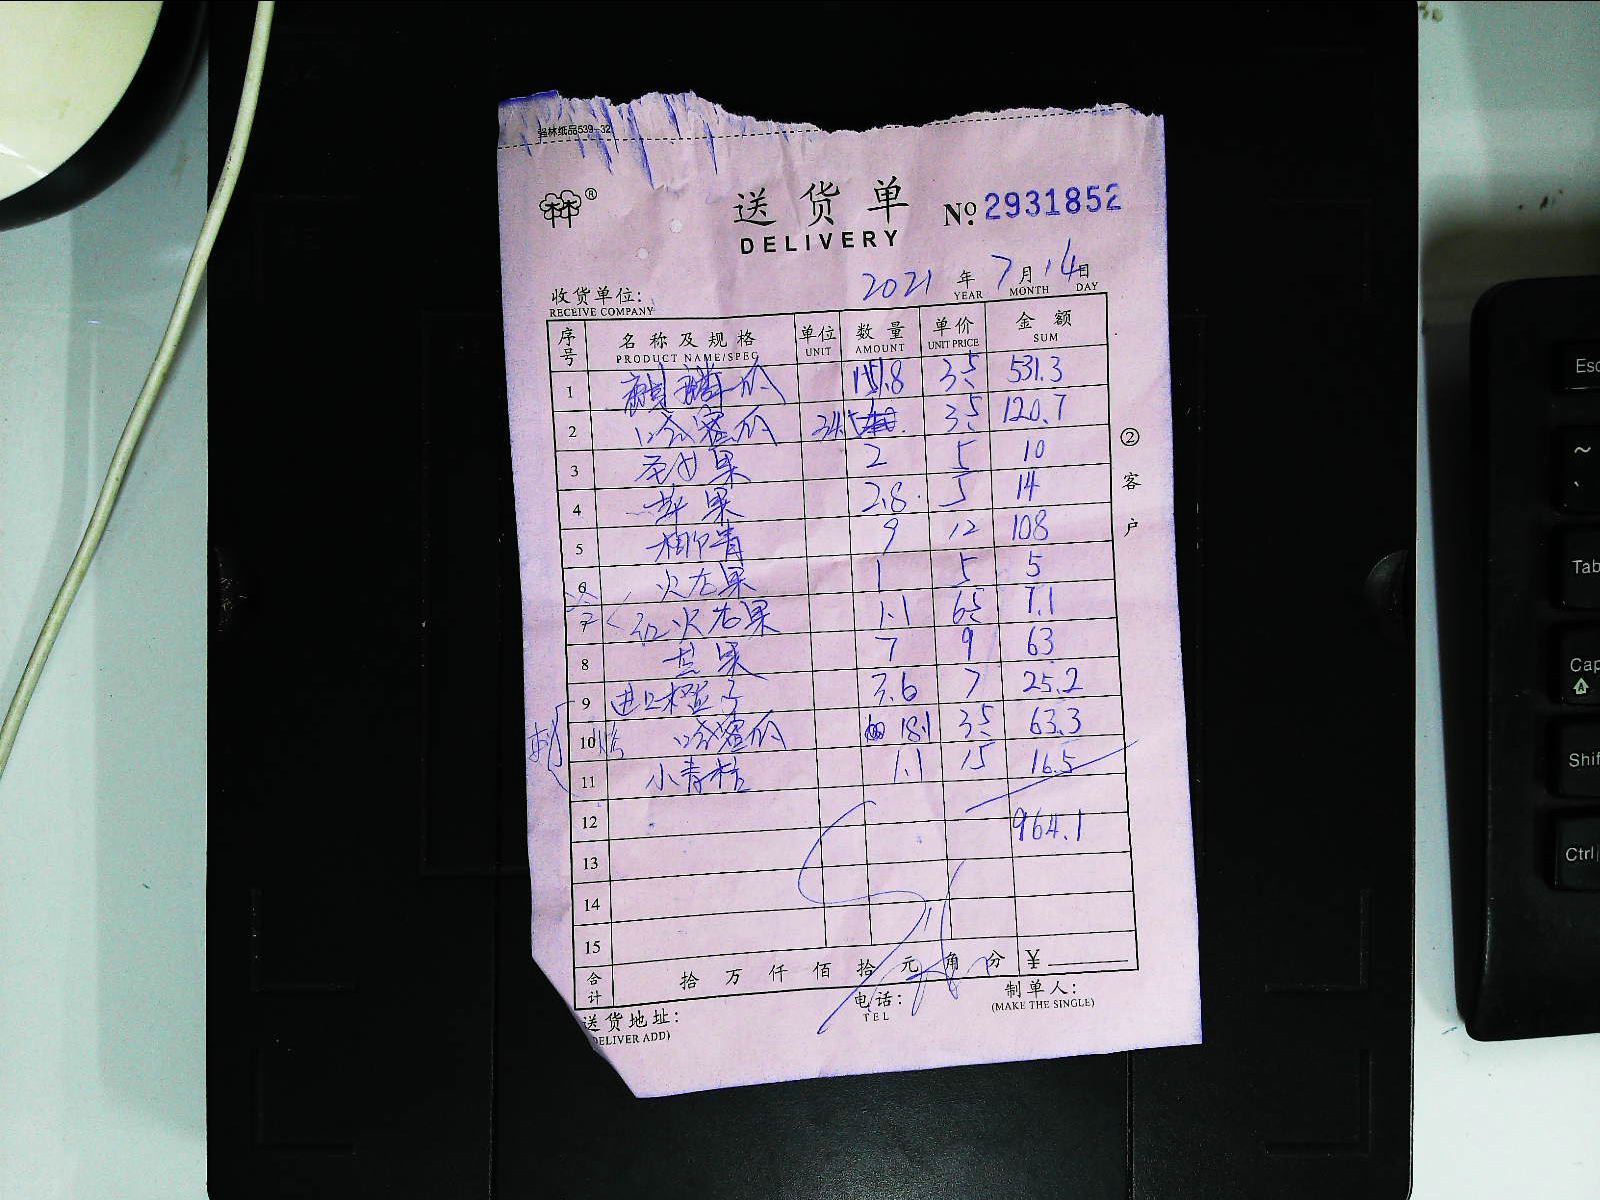 强林纸品539-32
林®
送货单
No. 2931852
DELIVERY
2021 年 7 月 14 日
YEAR MONTH DAY
收货单位:
RECEIVE COMPANY
序号 名称及规格 单位 数量 单价 金额
PRODUCT NAME/SPEC UNIT AMOUNT UNIT PRICE SUM
1 麒麟瓜 151.8 3.5 531.3
2 哈密瓜 34.5 3.5 120.7
3 圣女果 2 5 10
4 苹果 2.8 5 14
5 椰青 9 12 108
6 火龙果 1 5 5
7 红火龙果 1.1 6.5 7.1
8 芒果 7 9 63
9 进口橙子 3.6 7 25.2
10 哈密瓜 18.1 3.5 63.3
11 小青桔 1.1 15 16.5
12 964.1
13
14
15
合计 拾 万 仟 佰 拾 元 角 分 ¥
送货地址: 电话: 制单人:
DELIVER ADD) TEL (MAKE THE SINGLE)
② 客户
Esc
~
、
Tab
Cap
Shif
Ctrl